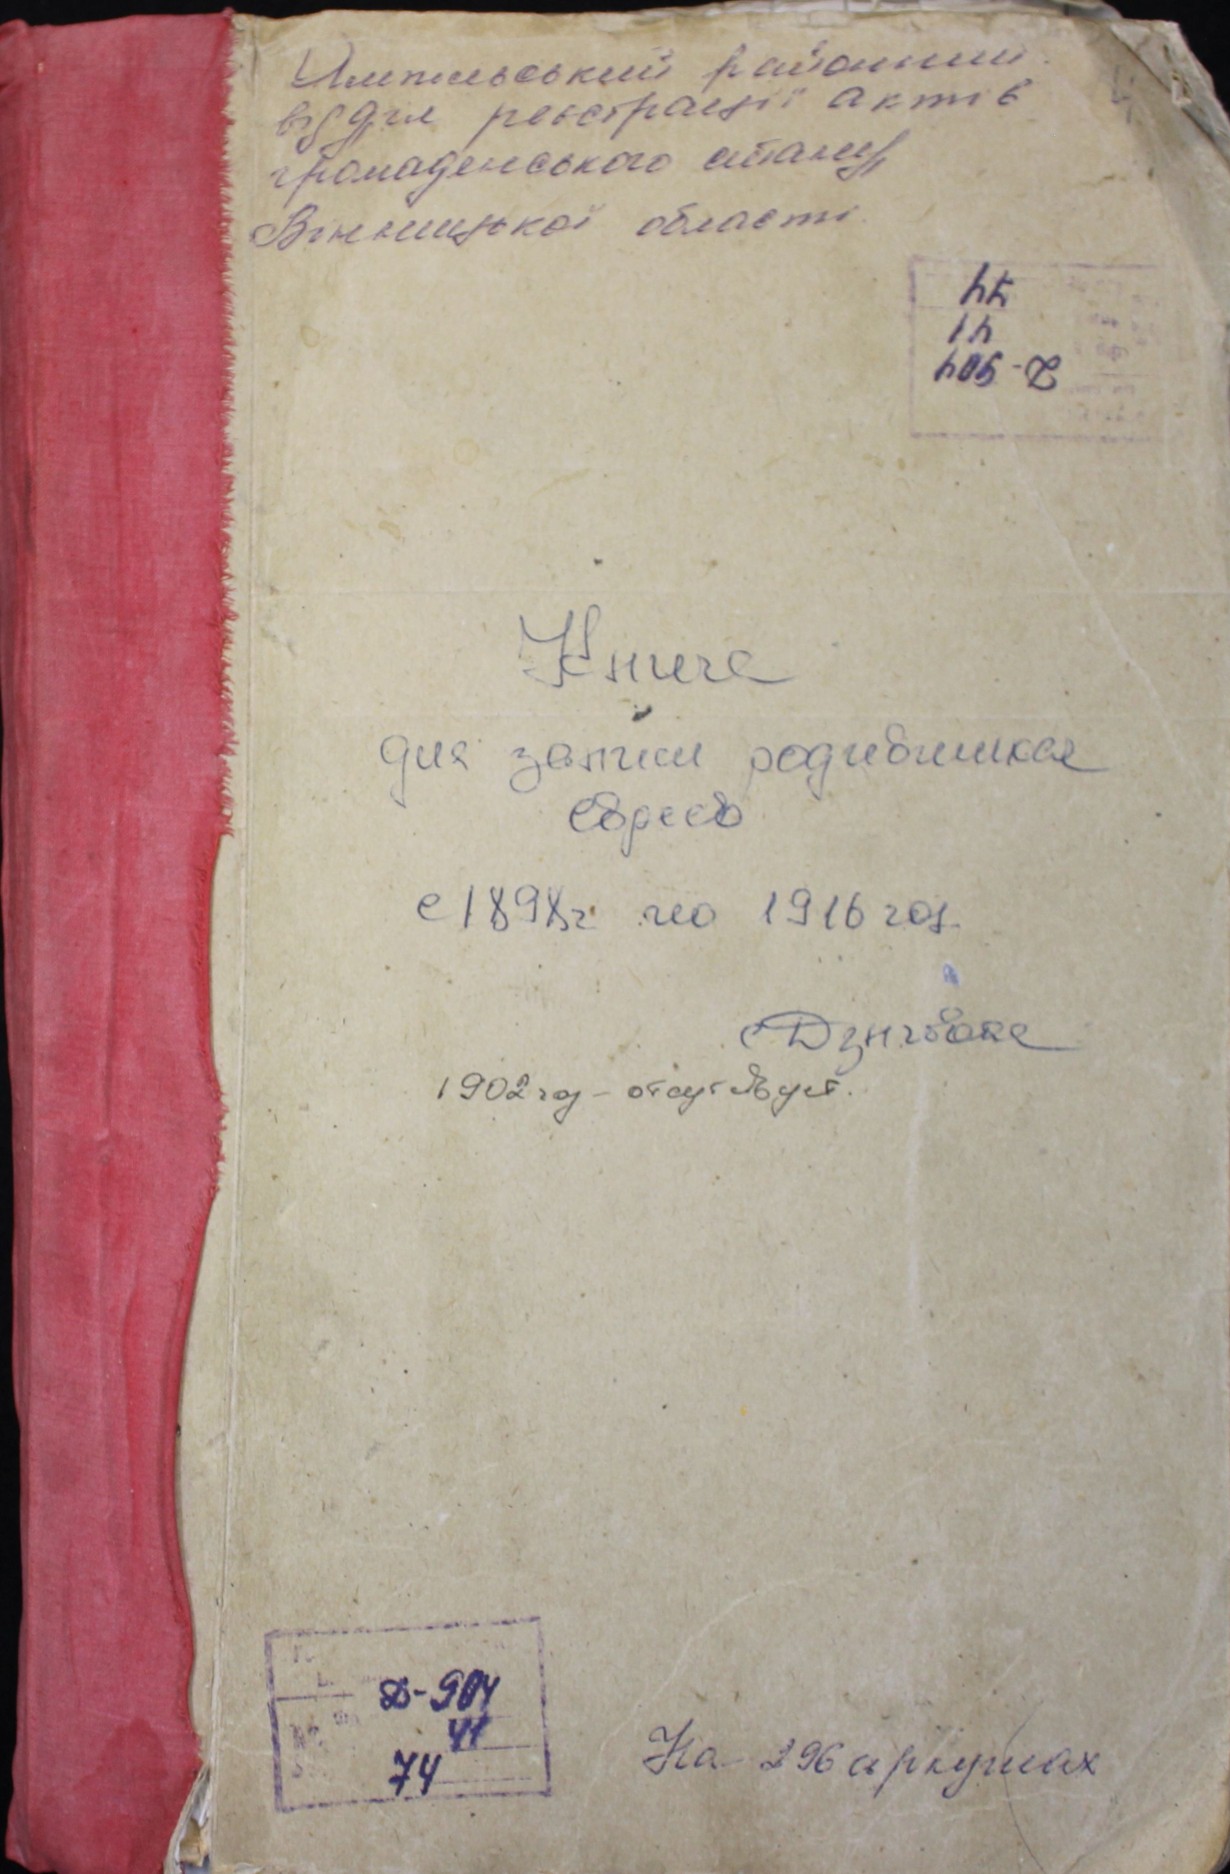 Ямпільський районний
відділ реєстрації актів
громадянського стану
Вінницької області
74
41
Д-904
Книга
для записи родившихся
евреев
с 1898г по 1916 год
Дзыговка
1902 год - отсутствует.
Д-904
41
74
На 296 аркушах